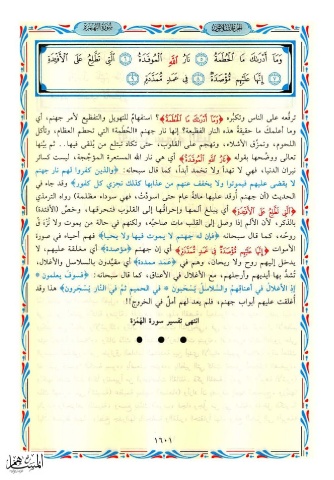 سورة الهمزة
الجزء الثلاثون
وَمَا أَدْرَىٰكَ مَا ٱلْحُطَمَةُ ٥ نَارُ ٱللَّهِ ٱلْمُوقَدَةُ ٦ ٱلَّتِى تَطَّلِعُ عَلَى ٱلْأَفْـِٔدَةِ
٧ إِنَّهَا عَلَيْهِم مُّؤْصَدَةٌ ٨ فِى عَمَدٍ مُّمَدَّدَةٍۭ ٩
ترفّعه على الناس وتكبّره ﴿وَمَا أَدْرَىٰكَ مَا ٱلْحُطَمَةُ﴾؟ استفهامٌ للتهويل والتفظيع لأمر جهنم، أي
وما أعلمك ما حقيقةُ هذه النار الفظيعة؟ إنها نار جهنم (الحُطَمة) التي تحطم العظام، وتأكل
اللحوم، وتمزّق الأشلاء، وتهجم على القلوب، حتى تكاد تبتلع من يُلقى فيها.. ثم بيَّنها
تعالى ووضّحها بقوله ﴿نَارُ ٱللَّهِ ٱلْمُوقَدَةُ﴾ أي هي نار الله المستعرة المؤجّجة، ليست كسائر
نيران الدنيا، فهي لا تهدأ ولا تخمد أبداً، كما قال سبحانه: ﴿والذين كفروا لهم نار جهنم
لا يقضى عليهم فيموتوا ولا يخفف عنهم من عذابها كذلك نجزي كل كفور﴾ وقد جاء في
الحديث (أن جهنم أُوقد عليها ألفَ عام حتى اسودّت، فهي سوداء مظلمة) رواه الترمذي
﴿ٱلَّتِى تَطَّلِعُ عَلَى ٱلْأَفْـِٔدَةِ﴾ أي يبلغ ألمها وإحراقُها إلى القلوب فتحرقها، وخصَّ (الأفئدة)
بالذكر، لأن الألم إذا وصل إلى القلب مات صاحبُه، ولكنهم في حالة من يموت ولا تُزهَق
روحُه، كما قال سبحانه ﴿فإن له جهنم لا يموت فيها ولا يحيا﴾ فهم أحياء في صورة
الأموات ﴿إِنَّهَا عَلَيْهِم مُّؤْصَدَةٌ فِى عَمَدٍ مُّمَدَّدَةٍ﴾ أي إن جهنم ﴿مؤصدة﴾ أي مغلقة عليهم، لا
يدخل إليهم روح ولا ريحان، وهم في ﴿عمد ممددة﴾ أي مقيّدون بالسلاسل والأغلال،
تُشدُّ بها أيديهم وأرجلهم، مع الأغلال في الأعناق، كما قال سبحانه: ﴿فسوف يعلمون *
إذ الأغلال في أعناقهم والسلاسل يُسحبون * في الحميم ثم في النار يُسجرون﴾ هذا وقد
أُغلقت عليهم أبواب جهنم، فلم يعد لهم أملٌ في الخروج!!
انتهى تفسير سورة الهُمَزة
١٦٠١